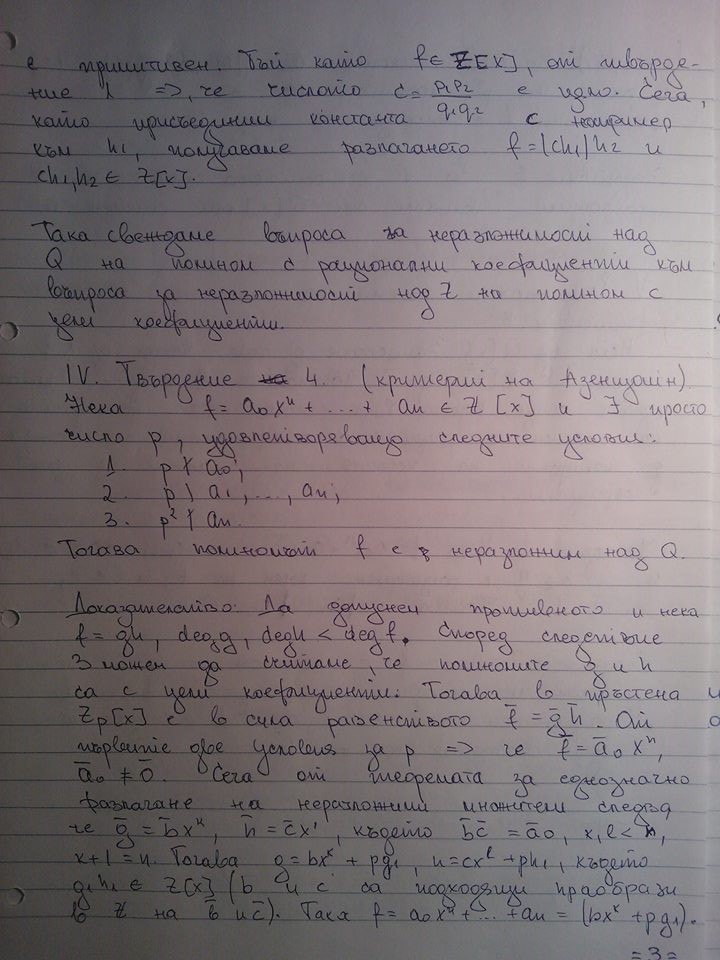 е примитивен. Тъй като f ∈ Z[x], от твърде-
ние 1 =>, че числото c = p₁p₂/q₁q₂ е цяло. Сега,
като присъединим константа c например
към h₁, получаваме разлагането f = (ch₁)h₂ и
ch₁,h₂ ∈ Z[x].
Така свеждаме въпроса за неразложимост над
Q на полином с рационални коефициенти към
въпроса за неразложимост над Z на полином с
цели коефициенти.
IV. Твърдение 4. (критерий на Айзенщайн).
Нека f = a₀xⁿ + ... + aₙ ∈ Z [x] и ∃ просто
число p, удовлетворяващо следните условия:
1. p ∤ a₀;
2. p \ a₁, ..., aₙ;
3. p² ∤ aₙ.
Тогава полиномът f е неразложим над Q.
Доказателство: Да допуснем противното и нека
f = gh, deg g, deg h < deg f. Според следствие
3 можем да считаме, че полиномите g и h
са с цели коефициенти. Тогава в пръстена
Zₚ[x] е в сила равенството f̄ = ḡh̄. От
първите две условия за p => че f̄ = ā₀xⁿ,
ā₀ ≠ 0̄. Сега от теоремата за еднозначно
разлагане на неразложими множители следва
че ḡ = b̄xᵏ, h̄ = c̄xˡ, където b̄c̄ = ā₀, k,l < n,
k+l = n. Тогава g = bxᵏ + pg₁, h = cxˡ + ph₁, където
g₁h₁ ∈ Z[x] (b и c са подходящи праобрази
в Z на b̄ и c̄). Така f = a₀xⁿ + ... + aₙ = (bxᵏ + pg₁).
=3=